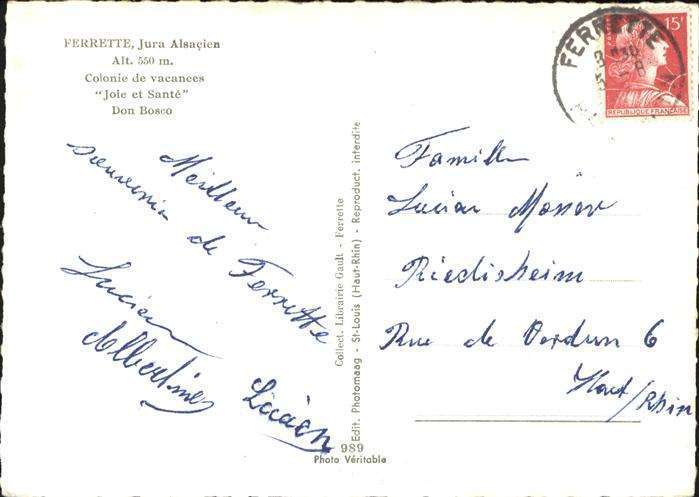 FERRETTE, Jura Alsaçien
Alt. 550 m.
Colonie de vacances
"Joie et Santé"
Don Bosco
Meilleur
souvenir de Ferrette
Lucien
Albertine
Collect. Librairie Gault - Ferrette
Edit. Photomaag - St-Louis (Haut-Rhin) - Reproduct. interdite
989
Photo Véritable
FERRETTE
15F
REPUBLIQUE FRANÇAISE
Famille
Lucien
Riedisheim
Rue de Verdun 6
Haut/Rhin